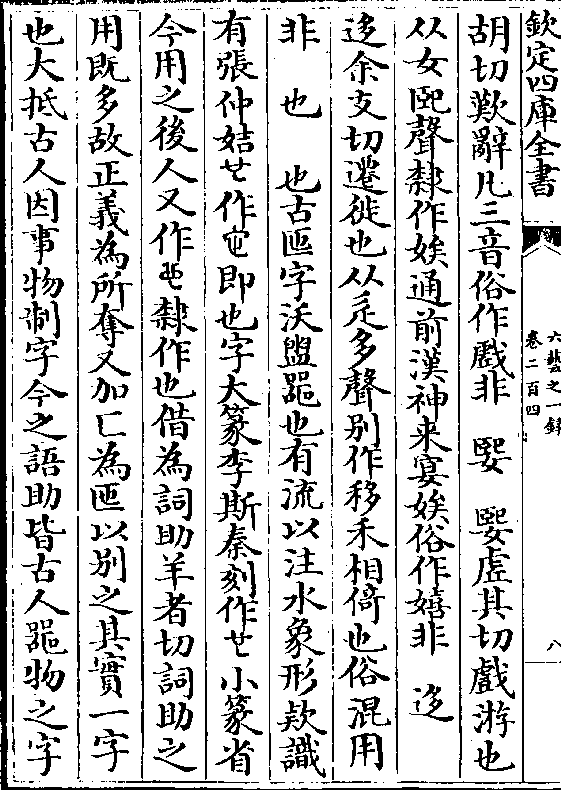 欽定四庫全書
六藝之一錄
卷二百四
八
胡切歎辭凡三音俗作戲非 娶 娶虛其切戲游也
从女巸聲隸作娭通前漢神来宴娭俗作嬉非 迻
迻余支切遷徙也从辵多聲别作移禾相倚也俗混用
非 也 也古匜字沃盥噐也有流以注水象形欵識
有張仲姞 作 即也字大篆李斯秦刻作 小篆省
今用之後人又作 隸作也借為詞助羊者切詞助之
用既多故正義為所奪又加匚為匜以别之其實一字
也大抵古人因事物制字今之語助皆古人噐物之字